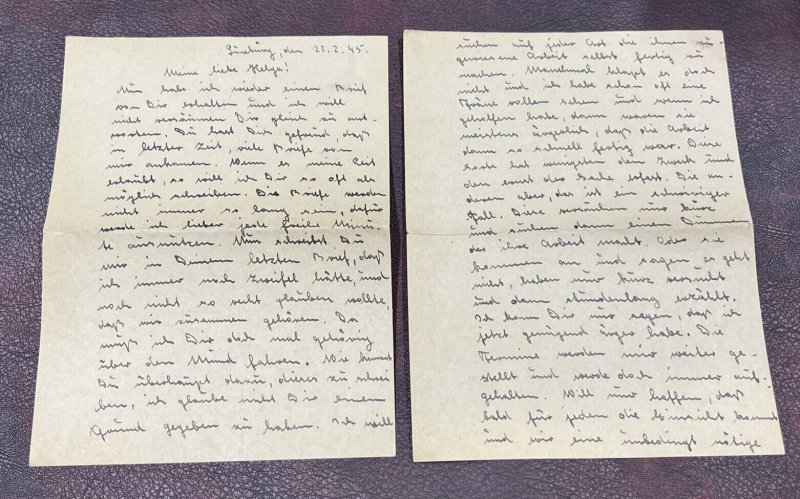 Günzburg, den 22.2.45.
Meine liebe Helga!
Nun habe ich wieder einen Brief
von Dir erhalten und ich will
nicht versäumen Dir gleich zu ant-
worten. Du hast Dich gefreud, daß
in letzter Zeit, viele Briefe von
mir ankamen. Wenn es meine Zeit
erlaubt, so will ich Dir so oft als
möglich schreiben. Die Briefe werden
nicht immer so lang sein, dafür
werde ich lieber jede freihe Minu-
te ausnützen. Nun schreibst Du
mir in Deinem letzten Brief, daß
ich immer noch Zweifel hätte, und
noch nicht so recht glauben wollte,
daß wir zusammen gehören. Da
muß ich Dir doch mal gehörig
über den Mund fahren. Wie kommst
Du überhaupt daran, dieses zu schrei
ben, ich glaube nicht Dir einen
Grund gegeben zu haben. Ich will
suchen auf jeder Art die ihnen
gewiesene Arbeit selbst fertig zu
machen. Manchmal klapt es doch
nicht und ich habe schon oft eine
Träne rollen sehen und wenn ich
geholfen habe, dann waren sie
meistens ärgerlich, daß die Arbeit
dann so schnell fertig war. Diese
hat wenigsten den Zweck und
den ernst der Sache erfast. Die an-
deren aber, das ist ein schwieriger
Fall. Diese versuchen nur kurz
und suchen dann einen Dummen,
der ihre Arbeit macht. Oder sie
kommen an und sagen es geht
nicht, haben nur kurz versucht
und dann stundenlang erzählt.
Ich kann Dir nur sagen, daß ich
jetzt genügend ärger habe. Die
Termine werden mir weiter ge-
stellt und werde doch immer auf-
gehalten. Will nur hoffen, daß
bald für jeden die Einsicht kommt
und wir eine unbedingt nötige